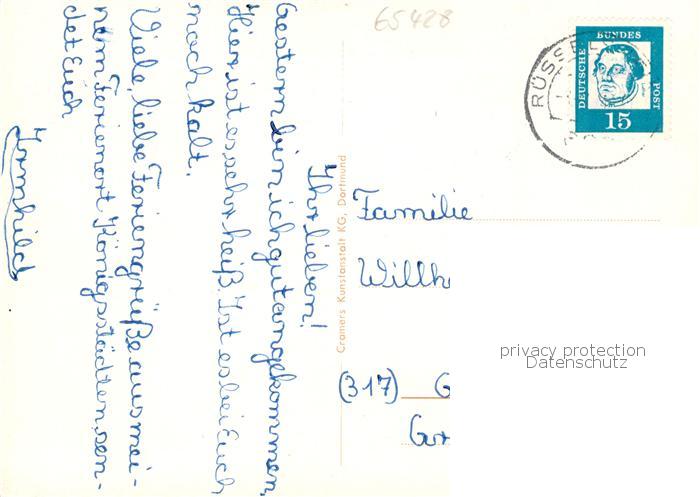 65428
Ihr lieben!
Gestern bin ich gut angekommen,
Hier ist es sehr heiß. Ist es bei Euch
noch kalt.
Viele, liebe Feriengrüße aus mei-
nem Ferienort Königsstädten, sen-
det Euch
Irmhild
Cramers Kunstanstalt KG, Dortmund
DEUTSCHE BUNDES POST
15
RÜSSEL
Familie
Willh
(317) G
Gr
privacy protection
Datenschutz